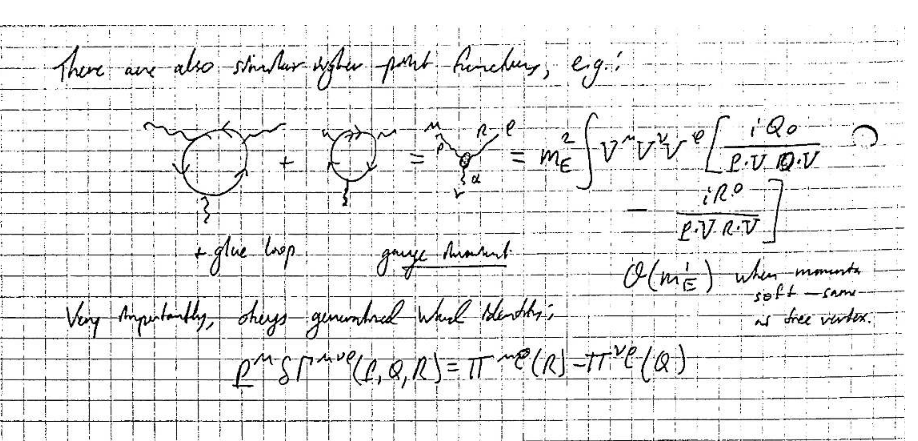 There are also similar higher point functions, e.g.:
+ = = m_E^2 ∫ V^μ V^ν V^ρ [ i Q_0 / P·V Q·V
μ P R ρ Q ν
- i R^0 / P·V R·V ]
+ glue loop
O(m_E^1) when momenta
soft – same
as tree vertex.
Very importantly, obeys generalized Ward Identity:
P^μ δΓ^{μνρ}(P,Q,R) = Π^{μρ}(R) - Π^{νρ}(Q)